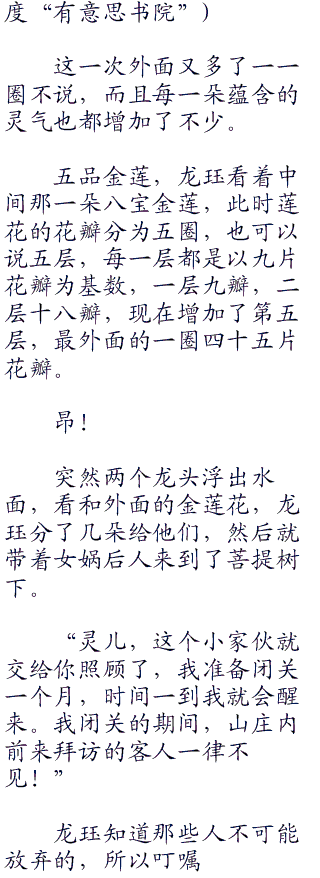 度“有意思书院”）
这一次外面又多了一一
圈不说，而且每一朵蕴含的
灵气也都增加了不少。
五品金莲，龙珏看着中
间那一朵八宝金莲，此时莲
花的花瓣分为五圈，也可以
说五层，每一层都是以九片
花瓣为基数，一层九瓣，二
层十八瓣，现在增加了第五
层，最外面的一圈四十五片
花瓣。
昂！
突然两个龙头浮出水
面，看和外面的金莲花，龙
珏分了几朵给他们，然后就
带着女娲后人来到了菩提树
下。
“灵儿，这个小家伙就
交给你照顾了，我准备闭关
一个月，时间一到我就会醒
来。我闭关的期间，山庄内
前来拜访的客人一律不
见！”
龙珏知道那些人不可能
放弃的，所以叮嘱